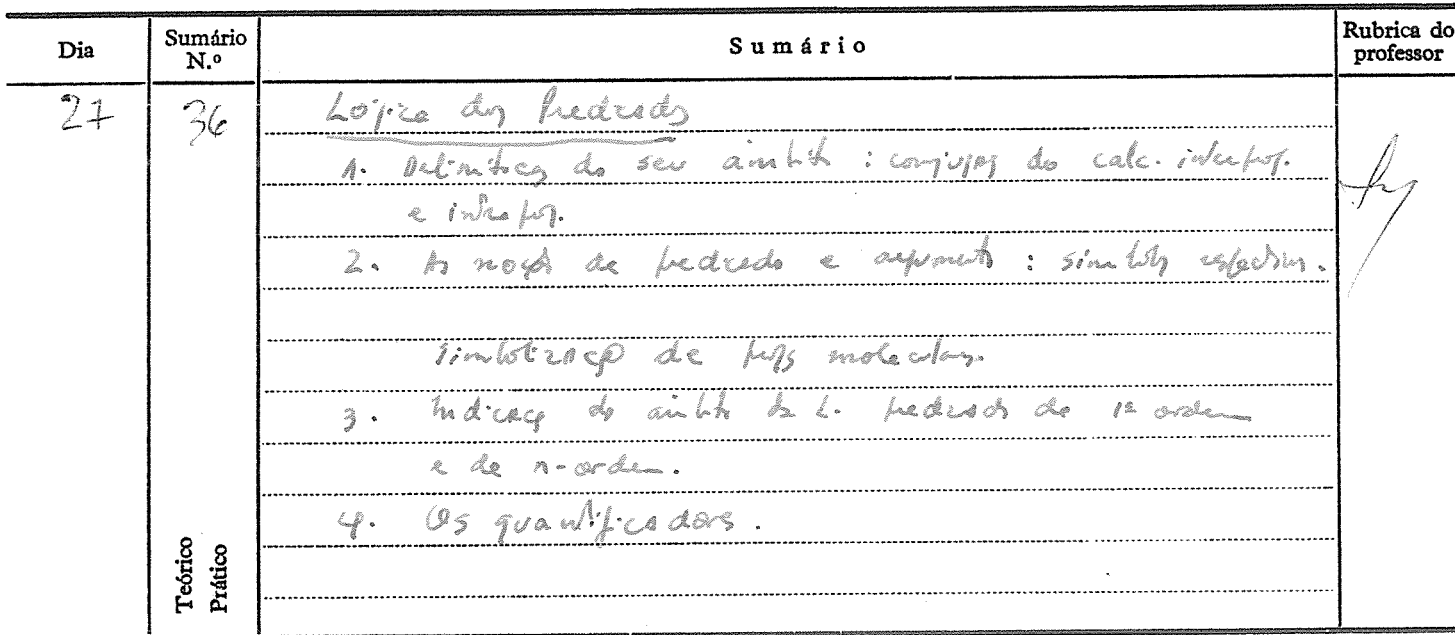 Dia
Sumário N.º
Sumário
Rubrica do professor
27
36
Lógica dos Predicados
1. Delimitação do seu âmbito : conjugação do calc. interprop.
e intraprop.
2. As noções de predicado e argumento : símbolos respectivos.
Simbolização de props moleculares.
3. Indicação do âmbito da L. predicados de 1ª ordem
e de n-ordem.
4. Os quantificadores.
Teórico
Prático